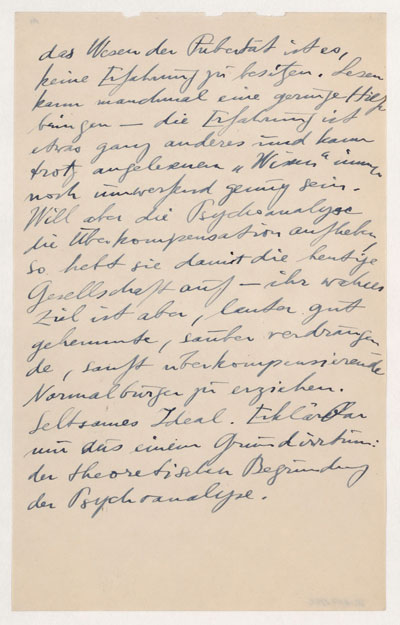 das Wesen der Pubertät ist es,
keine Erfahrung zu besitzen. Lesen
kann manchmal eine geringe Hilfe
bringen – die Erfahrung ist
etwas ganz anderes und kann
trotz angelesenen „Wissens“ immer
noch umwerfend genug sein.
Will aber die Psychoanalyse
die Überkompensation aufheben,
so hebt sie damit die heutige
Gesellschaft auf – ihr wahres
Ziel ist aber, lauter gut
gehemmte, sauber verdrängen
de, sanft überkompensierende
Normalbürger zu erziehen.
Seltsames Ideal. Erklärbar
nur aus einem Grundirrtum:
der theoretischen Begründung
der Psychoanalyse.